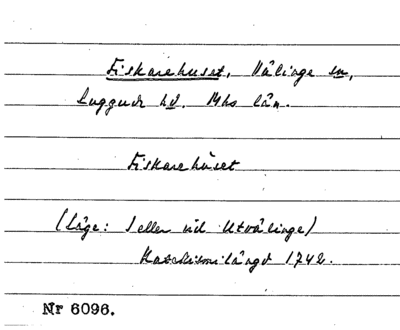 Fiskarehuset, Välinge sn,
Luggude hd. Mhs län.
Fiskarehuset
(Läge: I eller vid Utvälinge)
längd 1742.
Nr 6096.